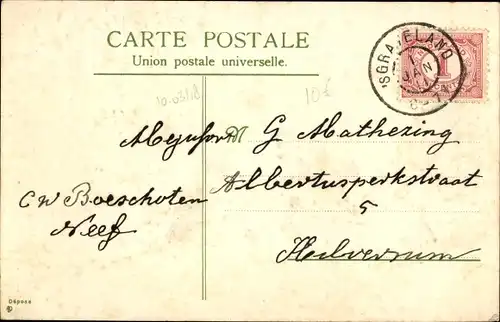 CARTE POSTALE
Union postale universelle.
'SGRAVELAND
JAN
1
10€
Mejufvr M G Mathezing
Albertusperkstraat
5
Hilversum
C W Boeschoten
Neef
Déposé